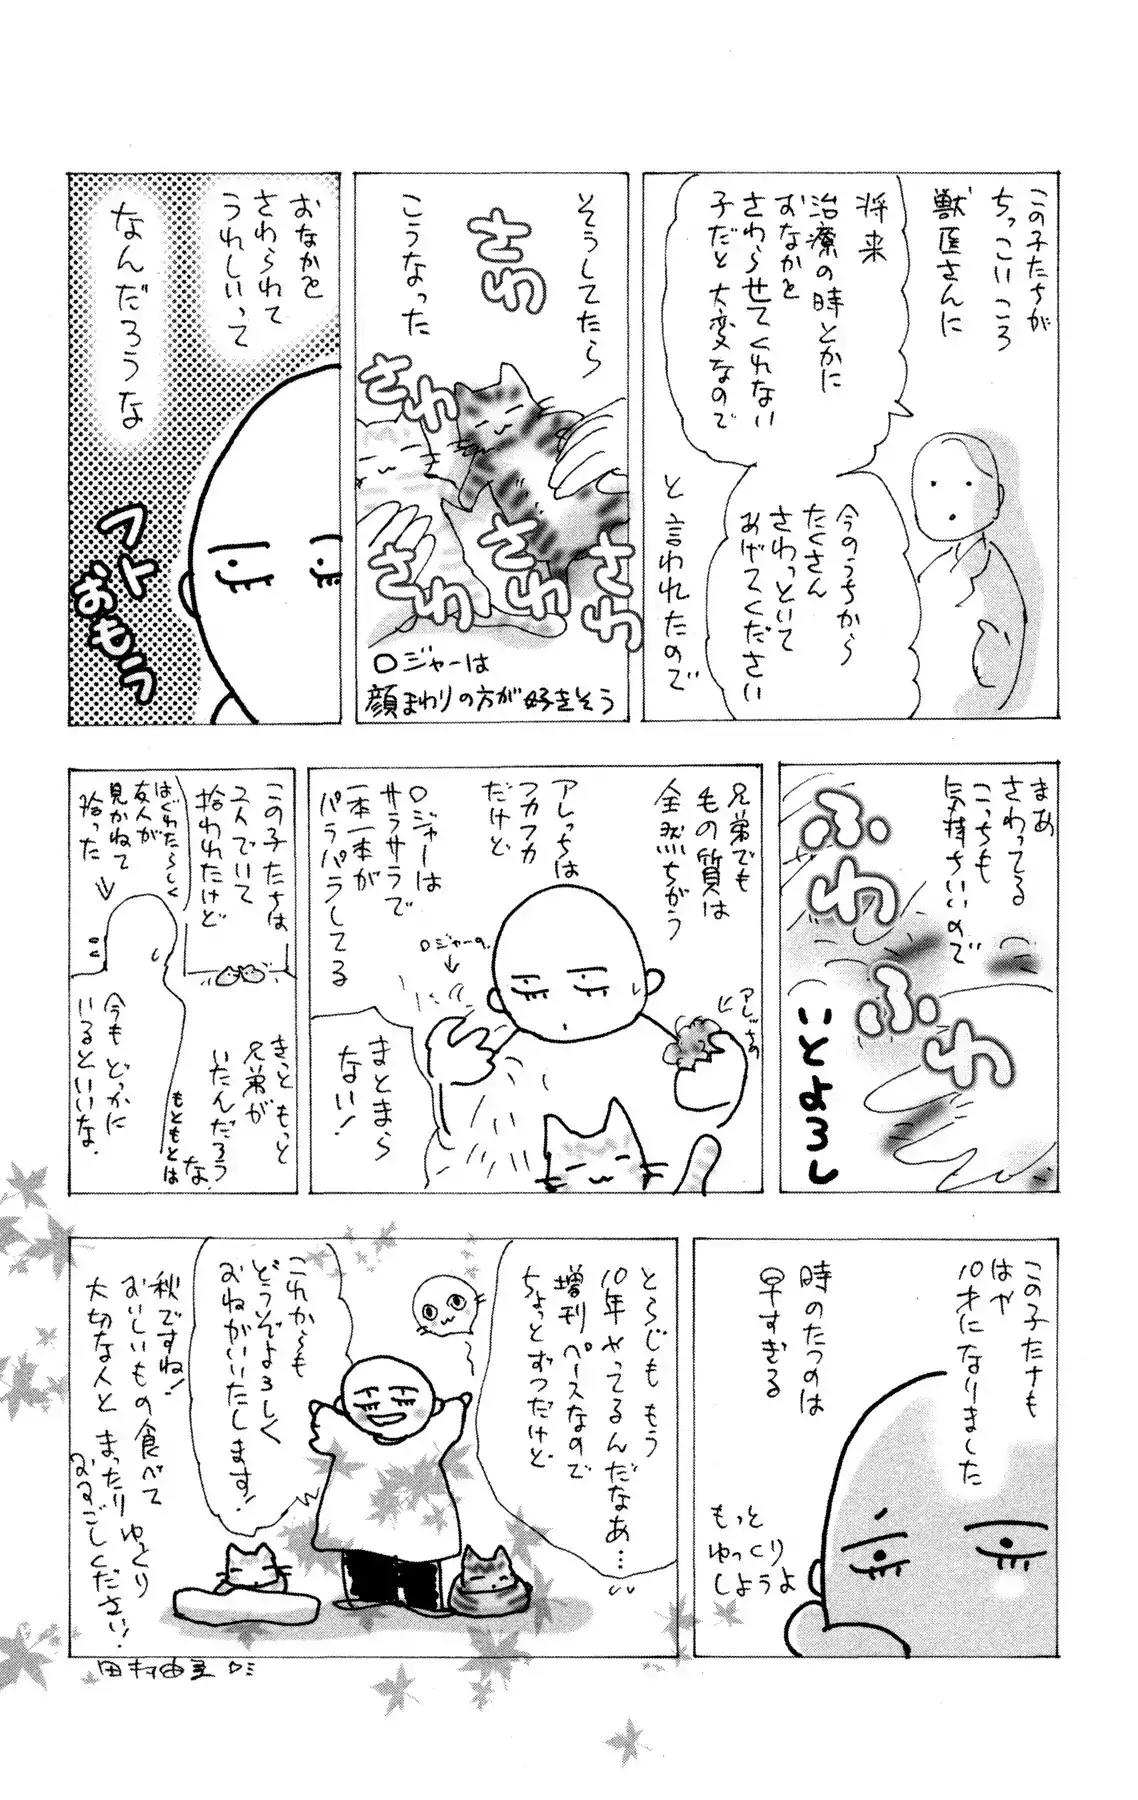 この子たちが
ちっこいころ
獣医さんに
将来
治療の時とかに
おなかを
さわらせてくれない
子だと大変なので
今のうちから
たくさん
さわっといて
あげてください
と言われたので
そうしてたら
こうなった
さわ
さわ
さわ
さわ
さわ
ロジャーは
顔まわりの方が好きそう
おなかを
さわられて
うれしいって
なんだろうな
フト
おもう
まあ
さわってる
こっちも
気持ちいいので
ふわ
ふわ
いとよろし
兄弟でも
毛の質は
全然ちがう
アレっちは
フカフカ
だけど
ロジャーは
サラサラで
一本一本が
パラパラしてる
アレっちの
ロジャーの
まとまら
ない!
この子たちは
2人でいて
拾われたけど
はぐれたらしく
友人が
見かねて
拾った
きっともっと
兄弟が
いたんだろうな
もともとは
今もどっかに
いるといいな
この子たちも
はや
10才になりました
時のたつのは
早すぎる
もっと
ゆっくり
しようよ
とらじももう
10年やってるんだなあ…
増刊ペースなので
ちょっとずつだけど
これからも
どうぞよろしく
おねがいいたします!
秋ですね!
おいしいもの食べて
大切な人とまったりゆっくり
おすごしください!
田村由美